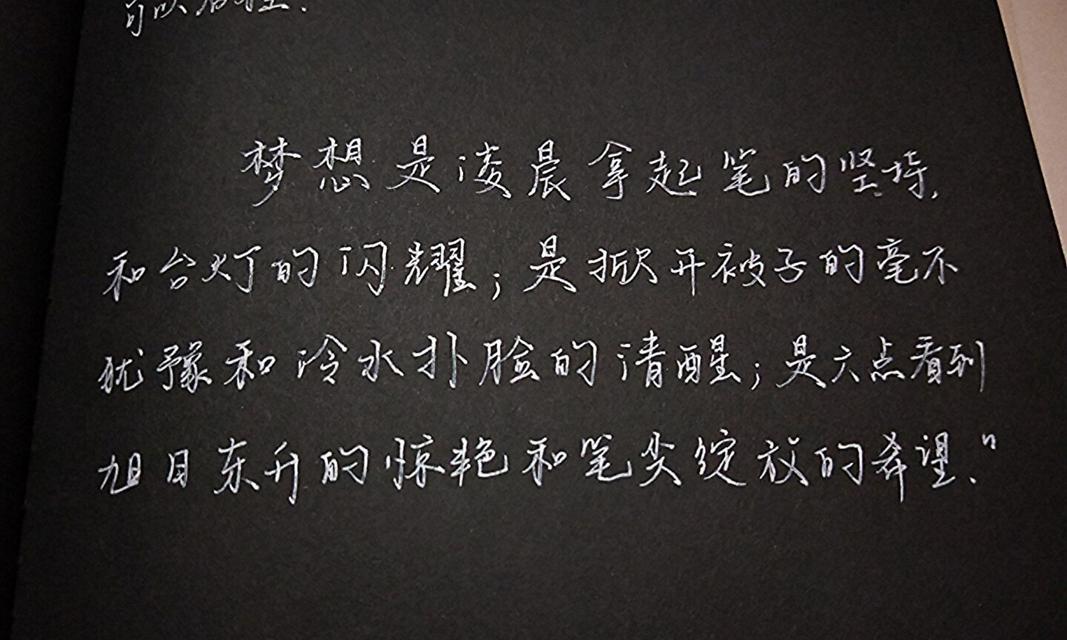 可以
梦想是凌晨拿起笔的坚持,
和台灯的闪耀;是掀开被子的毫不
犹豫和冷水扑脸的清醒;是六点看到
旭日东升的惊艳和笔尖绽放的希望."